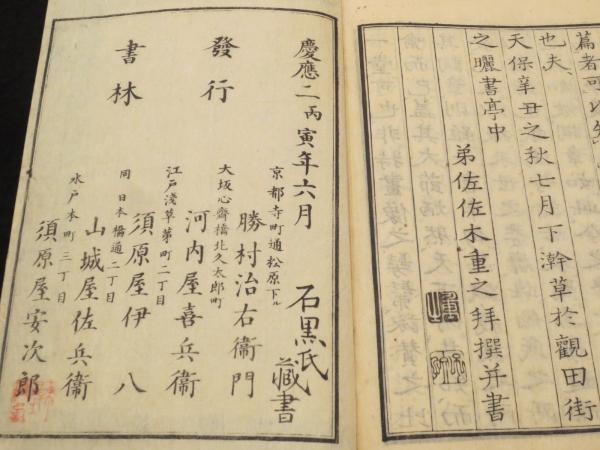 篇者可以知
也夫
天保辛丑之秋七月下澣草於觀田街
之曬書亭中
弟佐佐木重之拜撰并書
慶應二丙寅年六月
石黒氏藏書
發行
書林
京都寺町通松原下ル
勝村治右衞門
大坂心齋橋北久太郎町
河内屋喜兵衞
江戸淺草茅町二丁目
須原屋伊八
同日本橋通二丁目
山城屋佐兵衞
水戸本町三丁目
須原屋安次郎